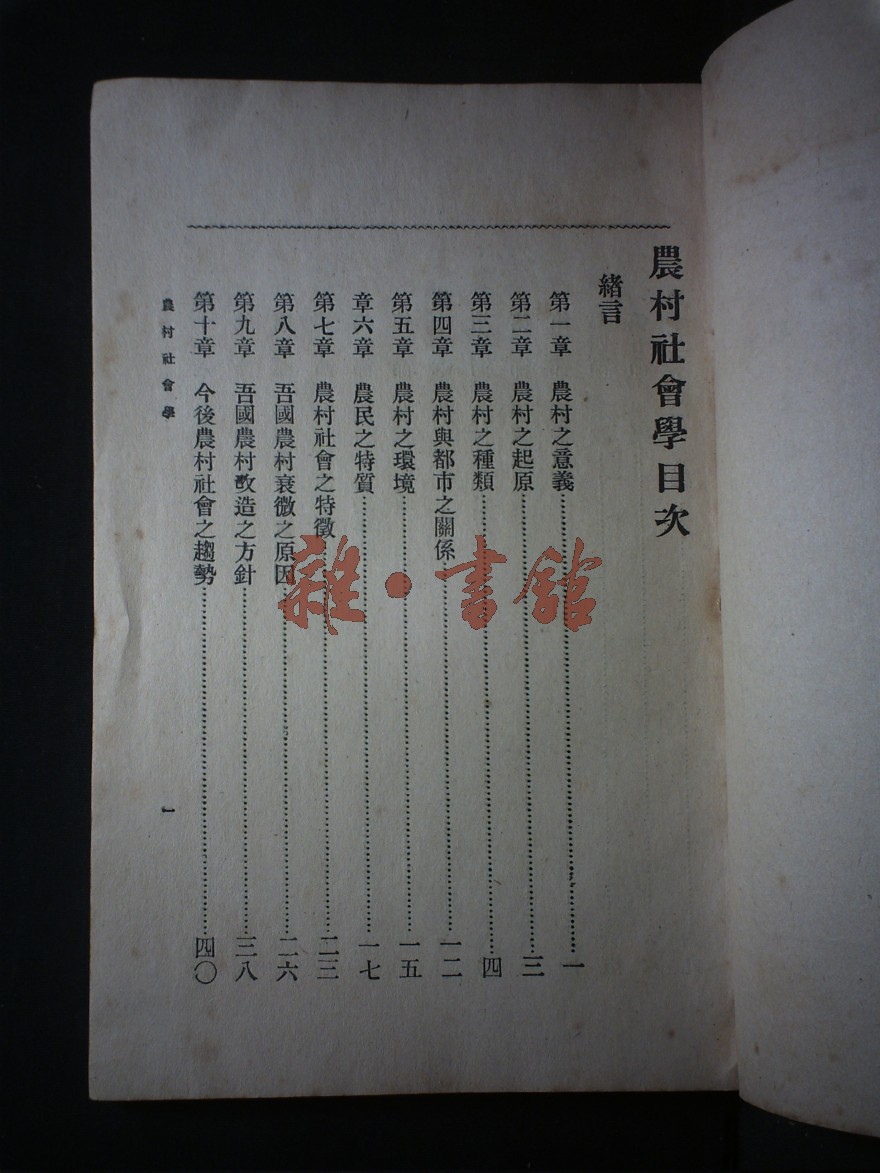 農村社會學目次
緒言
第一章　農村之意義……………一
第二章　農村之起原……………三
第三章　農村之種類……………四
第四章　農村與都市之關係……………一二
第五章　農村之環境……………一五
章六章　農民之特質……………一七
第七章　農村社會之特徵……………二三
第八章　吾國農村衰微之原因……………二六
第九章　吾國農村改造之方針……………三八
第十章　今後農村社會之趨勢……………四〇
農村社會學
一
雜·書館